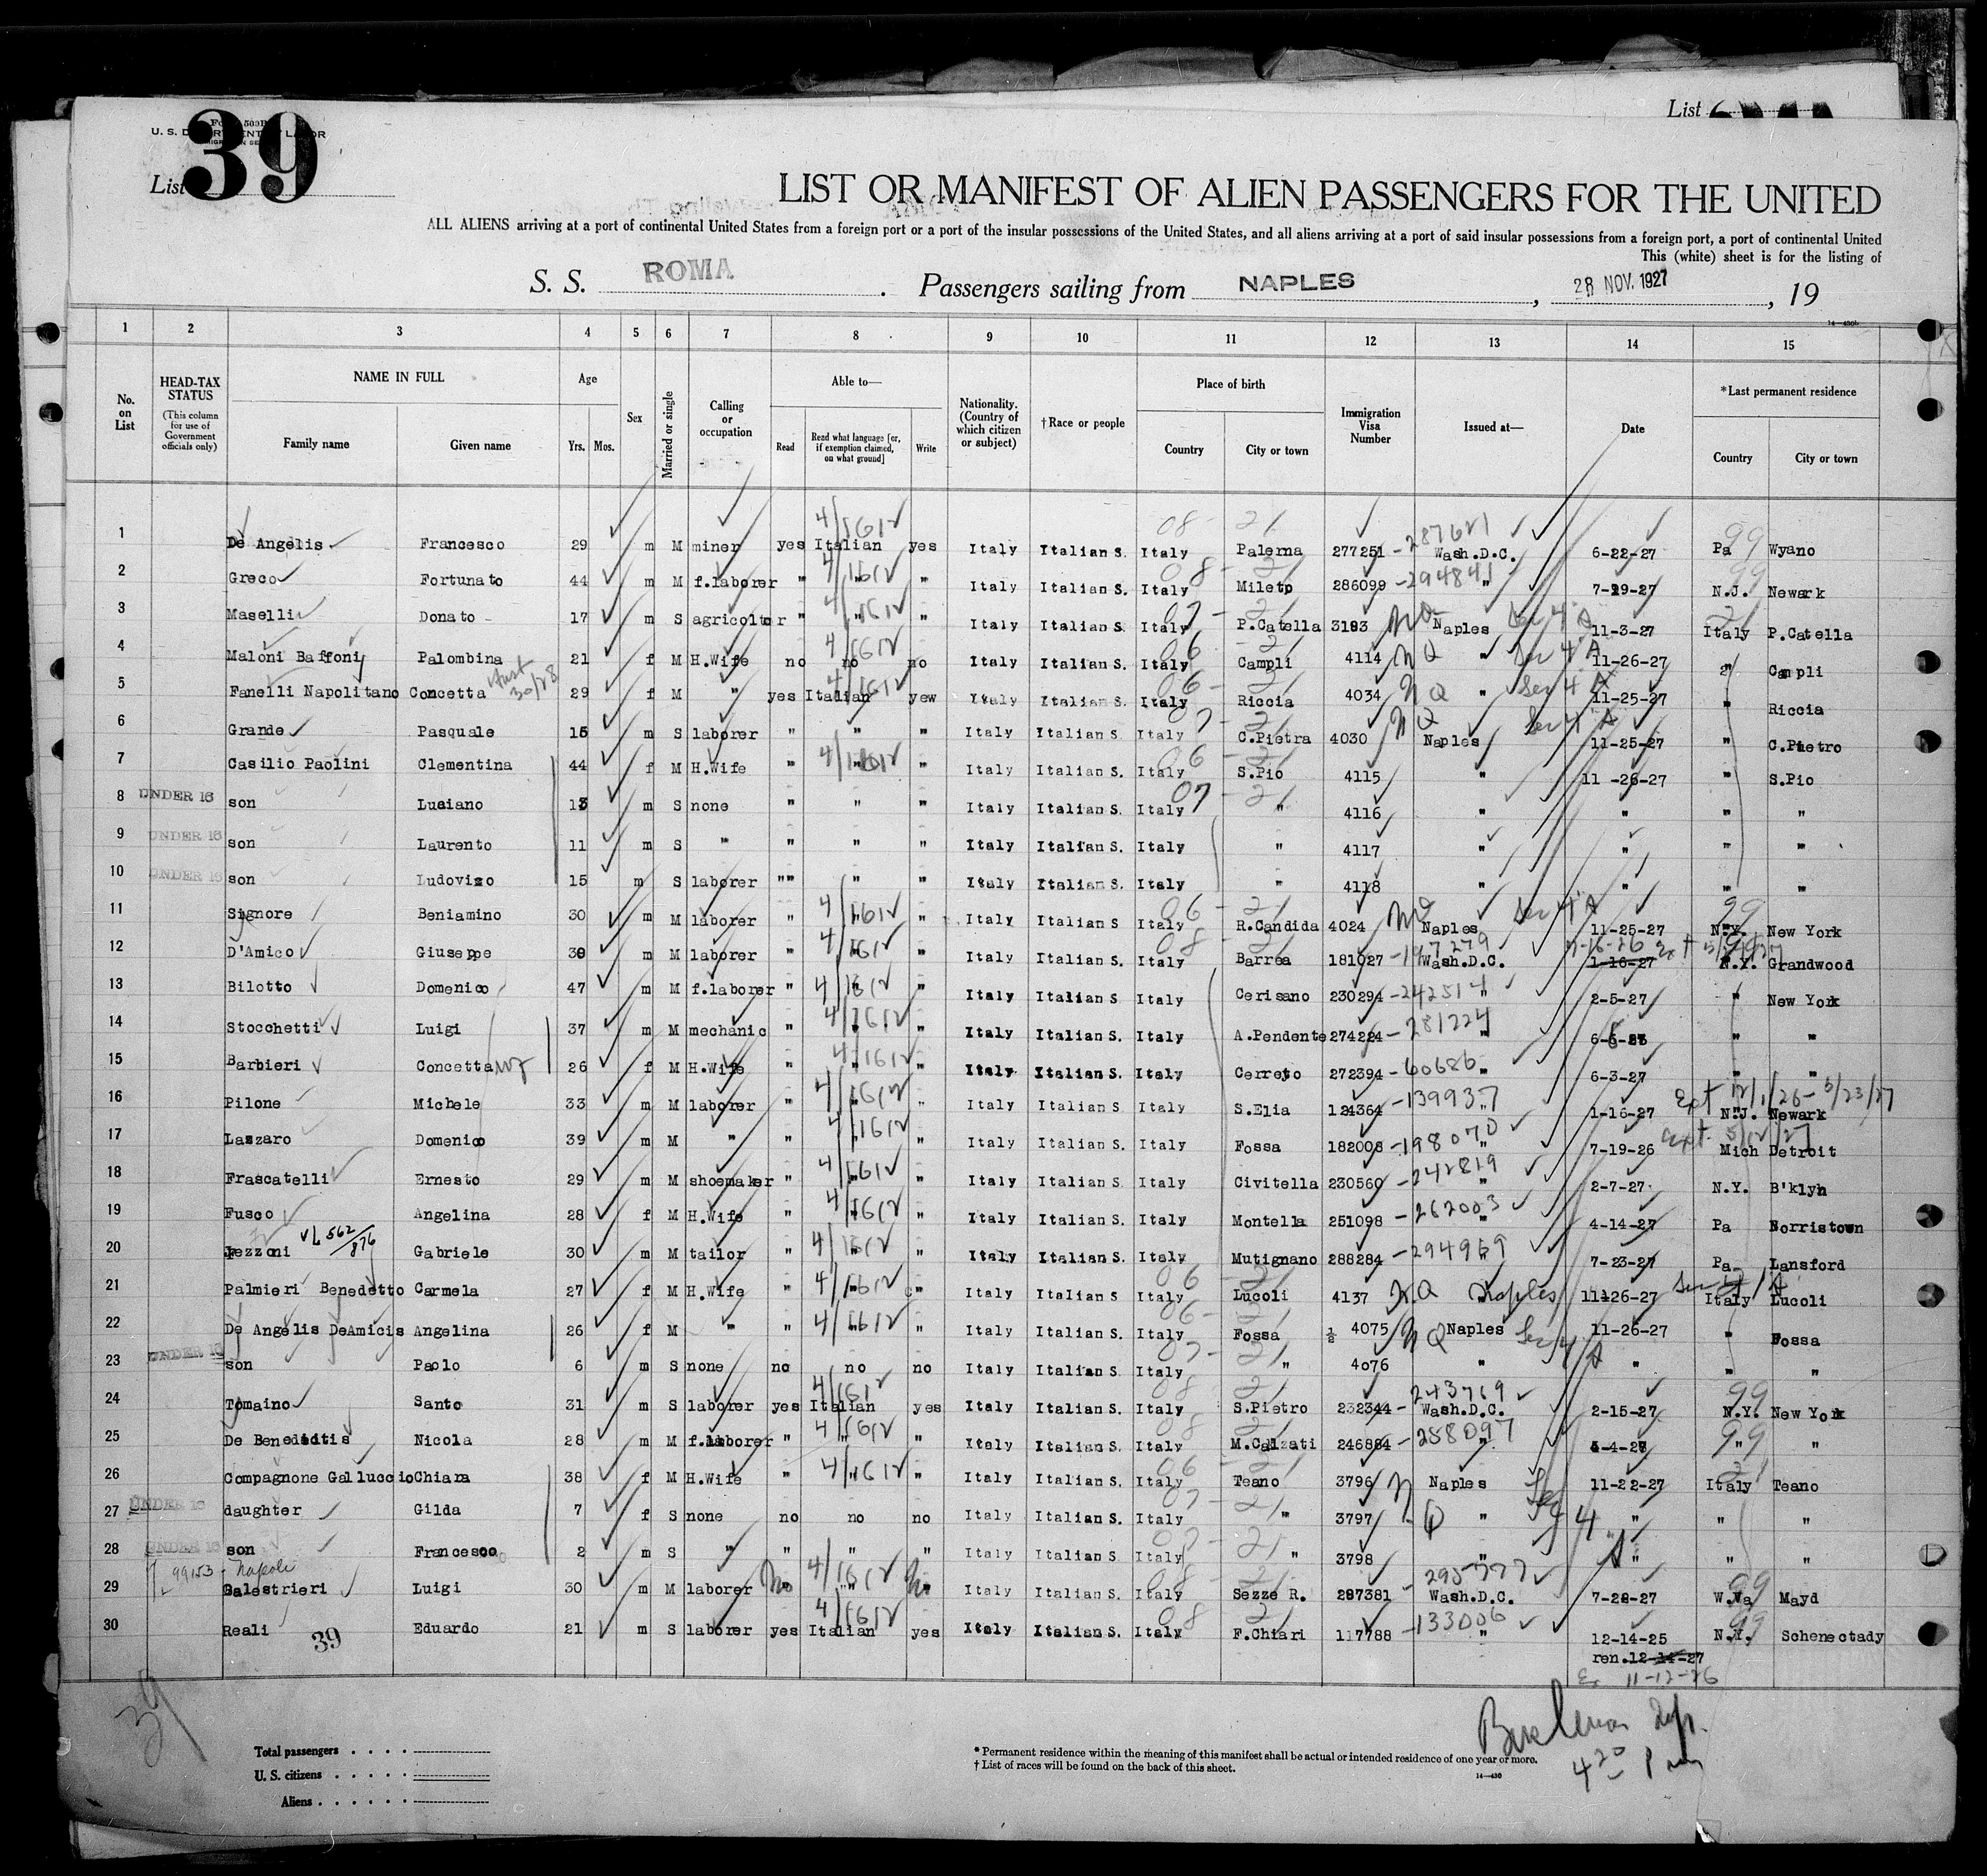 List
39
U. S. DEPARTMENT OF LABOR
List
LIST OR MANIFEST OF ALIEN PASSENGERS FOR THE UNITED
ALL ALIENS arriving at a port of continental United States from a foreign port or a port of the insular possessions of the United States, and all aliens arriving at a port of said insular possessions from a foreign port, a port of continental United
This (white) sheet is for the listing of
S. S. ROMA. Passengers sailing from NAPLES, 28 NOV. 1927, 19
1 2 3 4 5 6 7 8 9 10 11 12 13 14 15
No. on List
HEAD-TAX STATUS (This column for use of Government officials only)
NAME IN FULL Family name Given name
Age Yrs. Mos.
Sex
Married or single
Calling or occupation
Able to— Read Read what language [or, if exemption claimed, on what ground] Write
Nationality. (Country of which citizen or subject)
†Race or people
Place of birth Country City or town
Immigration Visa Number
Issued at—
Date
*Last permanent residence Country City or town
1 De Angelis Francesco 29 m M miner yes Italian yes Italy Italian S. Italy Palerna 277251 -287621 Wash.D.C. 6-22-27 Pa Wyano
2 Greco Fortunato 44 m M f.laborer " " " Italy Italian S. Italy Mileto 286099 -294841 " 7-29-27 N.J. Newark
3 Maselli Donato 17 m S agricoltor " " " Italy Italian S. Italy P.Catella 3193 Naples 11-3-27 Italy P.Catella
4 Maloni Baffoni Palombina 21 f M H.Wife no no no Italy Italian S. Italy Campli 4114 N Q " 11-26-27 " Campli
5 Fanelli Napolitano Concetta 29 f M " yes Italian yew Italy Italian S. Italy Riccia 4034 N Q " 11-25-27 " Riccia
6 Grande Pasquale 16 m S laborer " " " Italy Italian S Italy C.Pietra 4030 N Q Naples 11-25-27 " C.Pietro
7 Casilio Paolini Clementina 44 f M H.Wife " " " Italy Italian S. Italy S.Pio 4115 " 11-26-27 " S.Pio
8 UNDER 16 son Luciano 13 m S none " " " Italy Italian S. Italy " 4116 " " " "
9 UNDER 16 son Laurento 11 m S " " " " Italy Italian S. Italy " 4117 " " " "
10 UNDER 16 son Ludovico 15 m S laborer "" " " Italy Italian S. Italy " 4118 " " " "
11 Signore Beniamino 30 m M laborer " " " Italy Italian S Italy R.Candida 4024 Naples 11-25-27 N.Y. New York
12 D'Amico Giuseppe 30 m M laborer " " " Italy Italian S. Italy Barrea 181027 -197279 Wash.D.C. 1-16-27 N.Y. Grandwood
13 Bilotto Domenico 47 m M f.laborer " " " Italy Italian S. Italy Cerisano 230294 -242514 " 2-5-27 " New York
14 Stocchetti Luigi 37 m M mechanic " " " Italy Italian S. Italy A.Pendente 274224 -281224 " " "
15 Barbieri Concetta 26 f M H.Wife " " " Italy Italian S. Italy Cerreto 272394 -60686 " 6-3-27 " "
16 Pilone Michele 33 m M laborer " " " Italy Italian S Italy S.Elia 124364 -139937 " 1-16-27 N.J. Newark
17 Lazzaro Domenico 39 m M " " " " Italy Italian S. Italy Fossa 182008 -198070 " 7-19-26 Mich Detroit
18 Frascatelli Ernesto 29 m M shoemaker " " " Italy Italian S. Italy Civitella 230560 -242819 " 2-7-27 N.Y. B'klyn
19 Fusco Angelina 28 f M H.Wife " " " Italy Italian S. Italy Montella 251098 -262003 " 4-14-27 Pa Norristown
20 562/876 Gabriele 30 m M tailor " " " Italy Italian S. Italy Mutignano 288284 -294969 " 7-23-27 Pa Lansford
21 Palmieri Benedetto Carmela 27 f M H.Wife " " " Italy Italian S Italy Lucoli 4137 N.Q Naples 11-26-27 Italy Lucoli
22 De Angelis DeAmicis Angelina 26 f M " " " " Italy Italian S. Italy Fossa 4075 N Q Naples 11-26-27 " Fossa
23 UNDER 16 son Paolo 6 m S none no no no Italy Italian S. Italy " 4076 " " " "
24 Tomaino Santo 31 m S laborer yes Italian yes Italy Italian S. Italy S.Pietro 232344 -243769 Wash.D.C. 2-15-27 N.Y. New York
25 De Benedictis Nicola 28 m M f.laborer " " " Italy Italian S. Italy M.Calzati 246884 -258097 " " "
26 Compagnone Galluccio Chiara 38 f M H.Wife " " " Italy Italian S. Italy Teano 3796 N Naples 11-22-27 Italy Teano
27 UNDER 16 daughter Gilda 7 f S none no no no Italy Italian S. Italy " 3797 Q " " " "
28 UNDER 16 son Francesco 2 m S " " " " Italy Italian S Italy " 3798 " " "
99153 - Napoli
29 Balestrieri Luigi 30 m M laborer No " No Italy Italian S. Italy Sezze R. 287381 -295777 Wash.D.C. 7-28-27 W.Va Mayd
30 Reali Eduardo 21 m S laborer yes Italian yes Italy Italian S. Italy F.Chiari 117788 -133006 " 12-14-25 N.Y. Schenectady
39
ren.12-14-27
11-12-26
39
Total passengers
U. S. citizens
Aliens
* Permanent residence within the meaning of this manifest shall be actual or intended residence of one year or more.
† List of races will be found on the back of this sheet.
14—430
4 20 P m